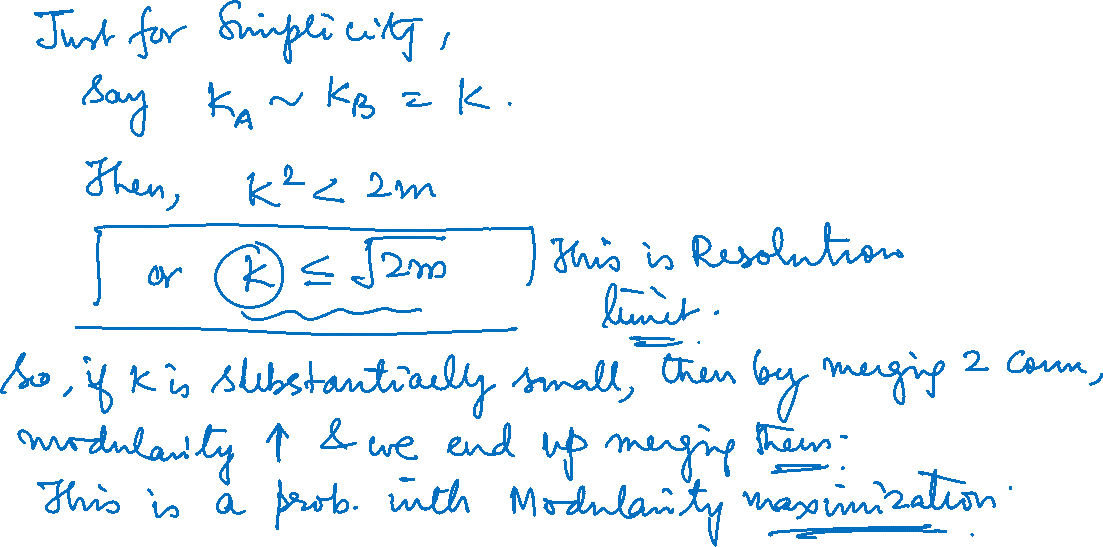 Just for Simplicity,
say k_A ~ k_B = k.
Then, k² < 2m
or k ≤ √2m This is Resolution
limit.
So, if k is substantially small, then by merging 2 comm,
modularity ↑ & we end up merging them.
This is a prob. with Modularity maximization.